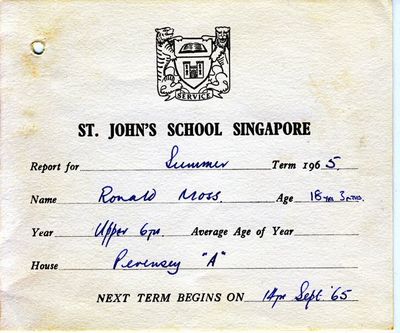 SERVICE
ST. JOHN'S SCHOOL SINGAPORE
Report for Summer Term 1965.
Name Ronald Moss. Age 18 yrs 3 mths.
Year Upper 6th Average Age of Year
House Pevensey "A"
NEXT TERM BEGINS ON 14th Sept. '65